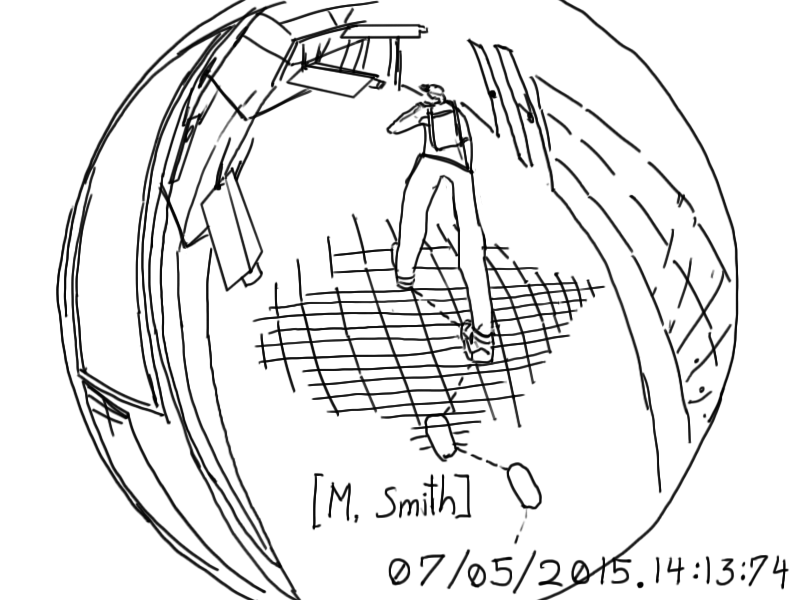 [M. Smith]
07/05/2015.14:13:74